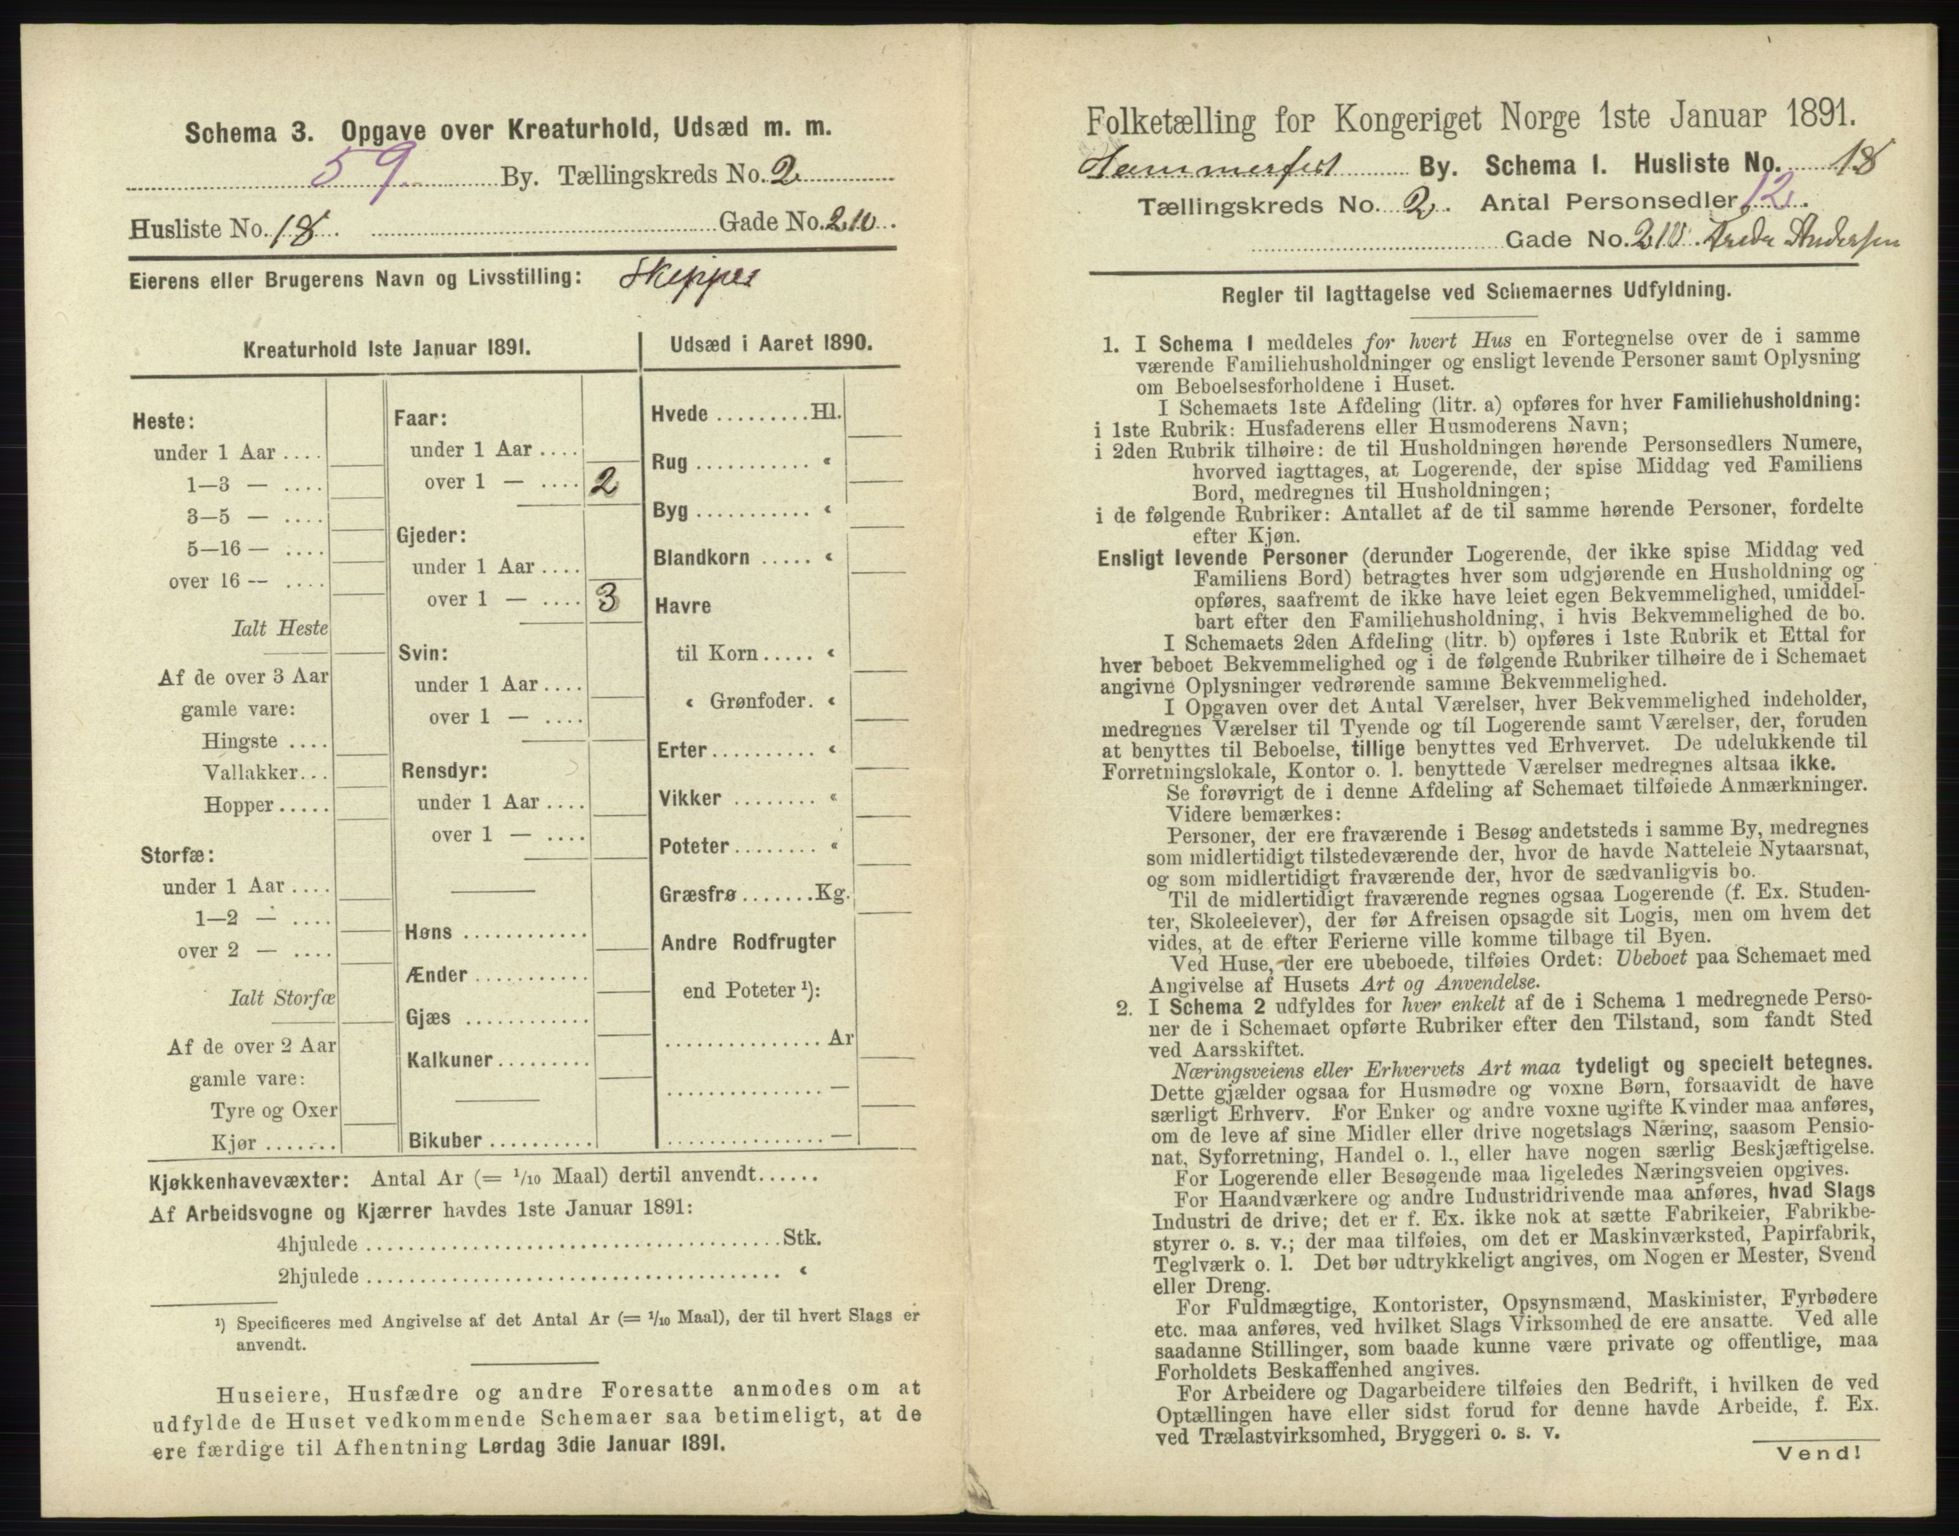 Schema 3. Opgave over Kreaturhold, Udsæd m. m.
59 By. Tællingskreds No. 2
Husliste No. 18 Gade No. 210.
Eierens eller Brugerens Navn og Livsstilling: Skipper
Kreaturhold 1ste Januar 1891.
Heste:
under 1 Aar ....
1—3 — ....
3—5 — ....
5—16 — ....
over 16 — ....
Ialt Heste
Af de over 3 Aar
gamle vare:
Hingste ....
Vallakker...
Hopper.....
Storfæ:
under 1 Aar ....
1—2 — ....
over 2 — ....
Ialt Storfæ
Af de over 2 Aar
gamle vare:
Tyre og Oxer
Kjør .......
Faar:
under 1 Aar ....
over 1 — .... 2
Gjeder:
under 1 Aar ....
over 1 — .... 3
Svin:
under 1 Aar ....
over 1 — ....
Rensdyr:
under 1 Aar ....
over 1 — ....
Høns ............
Ænder ...........
Gjæs ............
Kalkuner.........
Bikuber ..........
Udsæd i Aaret 1890.
Hvede .........Hl.
Rug ........... «
Byg ........... «
Blandkorn ..... «
Havre
til Korn ..... «
« Grønfoder. «
Erter.......... «
Vikker ........ «
Poteter........ «
Græsfrø .......Kg.
Andre Rodfrugter
end Poteter ¹):
............... Ar
............... —
............... —
Kjøkkenhavevæxter: Antal Ar (= 1/10 Maal) dertil anvendt......
Af Arbeidsvogne og Kjærrer havdes 1ste Januar 1891:
4hjulede ........................................ Stk.
2hjulede ........................................ «
¹) Specificeres med Angivelse af det Antal Ar (= 1/10 Maal), der til hvert Slags er
anvendt.
Huseiere, Husfædre og andre Foresatte anmodes om at
udfylde de Huset vedkommende Schemaer saa betimeligt, at de
ere færdige til Afhentning Lørdag 3die Januar 1891.
Folketælling for Kongeriget Norge 1ste Januar 1891.
Hammerfest By. Schema I. Husliste No. 18
Tællingskreds No. 2. Antal Personsedler 12.
Gade No. 210. Fredr Andersen
Regler til Iagttagelse ved Schemaernes Udfyldning.
1. I Schema 1 meddeles for hvert Hus en Fortegnelse over de i samme
værende Familiehusholdninger og ensligt levende Personer samt Oplysning
om Beboelsesforholdene i Huset.
I Schemaets 1ste Afdeling (litr. a) opføres for hver Familiehusholdning:
i 1ste Rubrik: Husfaderens eller Husmoderens Navn;
i 2den Rubrik tilhøire: de til Husholdningen hørende Personsedlers Numere,
hvorved iagttages, at Logerende, der spise Middag ved Familiens
Bord, medregnes til Husholdningen;
i de følgende Rubriker: Antallet af de til samme hørende Personer, fordelte
efter Kjøn.
Ensligt levende Personer (derunder Logerende, der ikke spise Middag ved
Familiens Bord) betragtes hver som udgjørende en Husholdning og
opføres, saafremt de ikke have leiet egen Bekvemmelighed, umiddel-
bart efter den Familiehusholdning, i hvis Bekvemmelighed de bo.
I Schemaets 2den Afdeling (litr. b) opføres i 1ste Rubrik et Ettal for
hver beboet Bekvemmelighed og i de følgende Rubriker tilhøire de i Schemaet
angivne Oplysninger vedrørende samme Bekvemmelighed.
I Opgaven over det Antal Værelser, hver Bekvemmelighed indeholder,
medregnes Værelser til Tyende og til Logerende samt Værelser, der, foruden
at benyttes til Beboelse, tillige benyttes ved Erhvervet. De udelukkende til
Forretningslokale, Kontor o. l. benyttede Værelser medregnes altsaa ikke.
Se forøvrigt de i denne Afdeling af Schemaet tilføiede Anmærkninger.
Videre bemærkes:
Personer, der ere fraværende i Besøg andetsteds i samme By, medregnes
som midlertidigt tilstedeværende der, hvor de havde Natteleie Nytaarsnat,
og som midlertidigt fraværende der, hvor de sædvanligvis bo.
Til de midlertidigt fraværende regnes ogsaa Logerende (f. Ex. Studen-
ter, Skoleelever), der før Afreisen opsagde sit Logis, men om hvem det
vides, at de efter Ferierne ville komme tilbage til Byen.
Ved Huse, der ere ubeboede, tilføies Ordet: Ubeboet paa Schemaet med
Angivelse af Husets Art og Anvendelse.
2. I Schema 2 udfyldes for hver enkelt af de i Schema 1 medregnede Perso-
ner de i Schemaet opførte Rubriker efter den Tilstand, som fandt Sted
ved Aarsskiftet.
Næringsveiens eller Erhvervets Art maa tydeligt og specielt betegnes.
Dette gjælder ogsaa for Husmødre og voxne Børn, forsaavidt de have
særligt Erhverv. For Enker og andre voxne ugifte Kvinder maa anføres,
om de leve af sine Midler eller drive nogetslags Næring, saasom Pensio-
nat, Syforretning, Handel o. l., eller have nogen særlig Beskjæftigelse.
For Logerende eller Besøgende maa ligeledes Næringsveien opgives.
For Haandværkere og andre Industridrivende maa anføres, hvad Slags
Industri de drive; det er f. Ex. ikke nok at sætte Fabrikeier, Fabrikbe-
styrer o. s. v.; der maa tilføies, om det er Maskinværksted, Papirfabrik,
Teglværk o. l. Det bør udtrykkeligt angives, om Nogen er Mester, Svend
eller Dreng.
For Fuldmægtige, Kontorister, Opsynsmænd, Maskinister, Fyrbødere
etc. maa anføres, ved hvilket Slags Virksomhed de ere ansatte. Ved alle
saadanne Stillinger, som baade kunne være private og offentlige, maa
Forholdets Beskaffenhed angives.
For Arbeidere og Dagarbeidere tilføies den Bedrift, i hvilken de ved
Optællingen have eller sidst forud for denne havde Arbeide, f. Ex.
ved Trælastvirksomhed, Bryggeri o. s. v.
Vend!